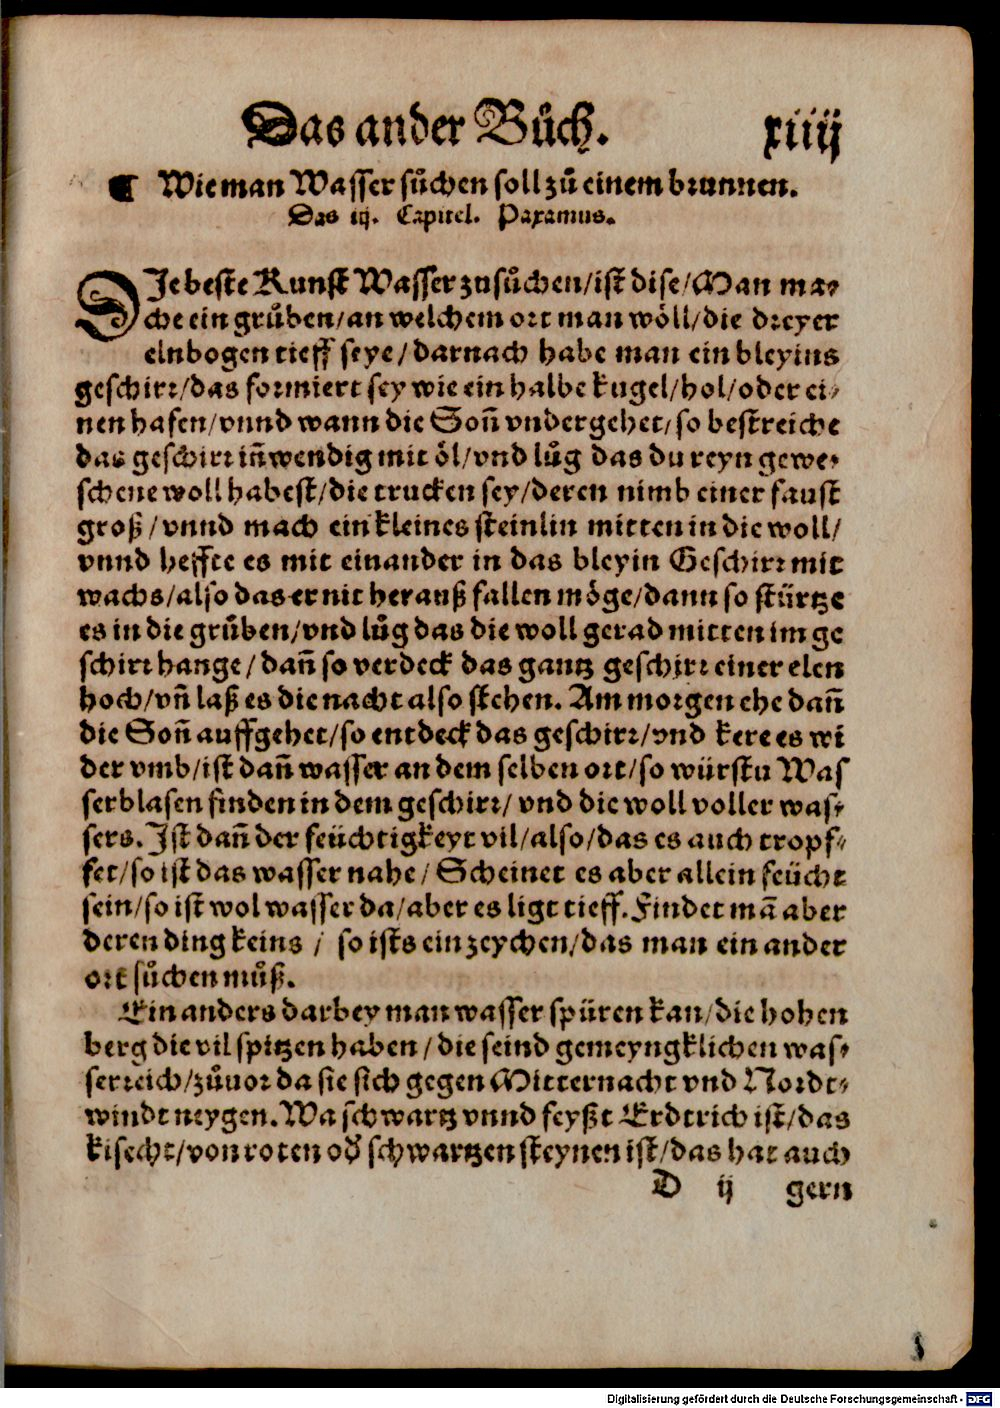 Das ander Bůch. xiiij
¶ Wie man Wasser sůchen soll zů einem brunnen.
Das iij. Capitel. Paxamus.
DIe beste Kunst Wasser zusůchen/ist dise/Man ma⸗
che ein grůben/an welchem ort man wöll/die dreyer
elnbogen tieff seye/darnach habe man ein bleyins
geschirr/das formiert sey wie ein halbe kugel/hol/oder ei⸗
nen hafen/vnnd wann die Soñ vndergehet/so bestreiche
das geschirr iñwendig mit öl/vnd lůg das du reyn gewe⸗
schene woll habest/die trucken sey/deren nimb einer faust
groß/vnnd mach ein kleines steinlin mitten in die woll/
vnnd heffte es mit einander in das bleyin Geschirr mit
wachs/also das er nit herauß fallen möge/dann so stürtze
es in die grůben/vnd lůg das die woll gerad mitten im ge
schirr hange/dañ so verdeck das gantz geschirr einer elen
hoch/vñ laß es die nacht also stehen. Am morgen ehe dañ
die Soñ auffgehet/so entdeck das geschirr/vnd kere es wi
der vmb/ist dañ wasser an dem selben ort/so würstu Was
serblasen finden in dem geschirr/vnd die woll voller was⸗
sers. Ist dañ der feüchtigkeyt vil/also/das es auch tropf⸗
fet/so ist das wasser nahe/Scheinet es aber allein feücht
sein/so ist wol wasser da/aber es ligt tieff. Findet mã aber
deren ding keins/so ists ein zeychen/das man ein ander
ort sůchen můß.
Ein anders darbey man wasser spüren kan/die hohen
berg die vil spitzen haben/die seind gemeyngklichen was⸗
serreich/zůuor da sie sich gegen Mitternacht vnd Nordt⸗
windt neygen. Wa schwartz vnnd feyßt Erdtrich ist/das
kisecht/von roten od̕ schwartzen steynen ist/das hat auch
D ij gern
Digitalisierung gefördert durch die Deutsche Forschungsgemeinschaft - DFG